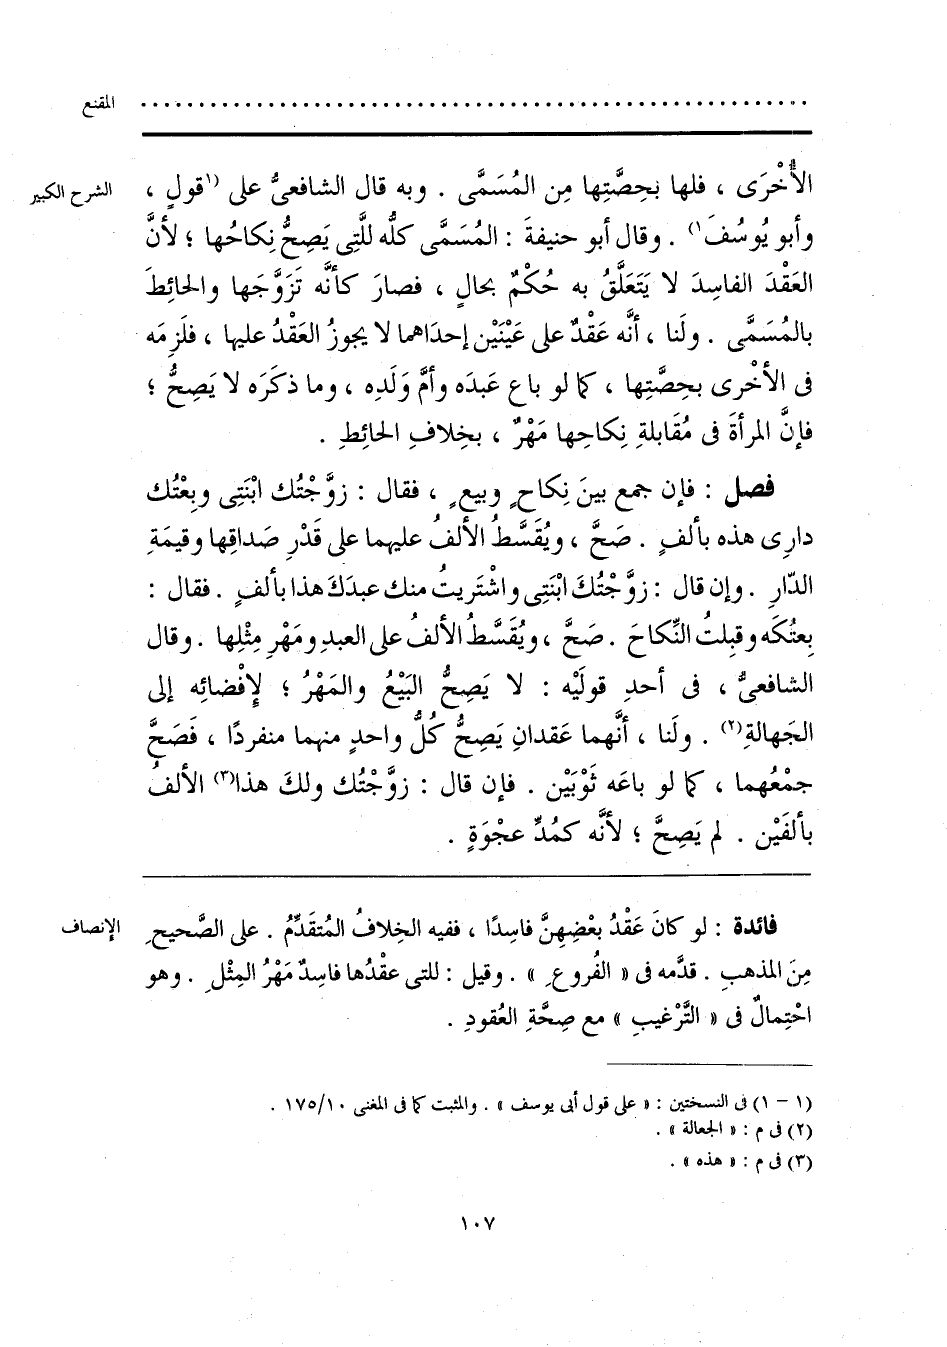 المقنع ........................................................
الشرح الكبير
الأُخْرَى ، فلها بحِصَّتِها مِن المُسَمَّى . وبه قال الشافعىُّ على (١قولٍ ،
وأبو يُوسُفَ١) . وقال أبو حنيفةَ : المُسَمَّى كلُّه للَّتِى يَصِحُّ نِكاحُها ؛ لأنَّ
العَقْدَ الفاسِدَ لا يَتَعَلَّقُ به حُكْمٌ بحالٍ ، فصارَ كأنَّه تَزَوَّجَها والحائِطَ
بالمُسَمَّى . ولَنا ، أنَّه عَقْدٌ على عَيْنَيْن إحدَاهما لا يجوزُ العَقْدُ عليها ، فلَزِمَه
فى الأُخْرى بحِصَّتِها ، كما لو باع عَبدَه وأمَّ وَلَدِه ، وما ذكَرَه لا يَصِحُّ ؛
فإنَّ المرأةَ فى مُقَابلةِ نِكاحِها مَهْرٌ ، بخِلافِ الحائِطِ .
فصل : فإن جمع بينَ نِكاحٍ وبيعٍ ، فقال : زوَّجْتُك ابْنَتِى وبِعْتُك
دارِى هذه بألفٍ . صَحَّ ، ويُقَسَّطُ الألفُ عليهما على قَدْرِ صَداقِها وقيمَةِ
الدّارِ . وإن قال : زوَّجْتُكَ ابْنَتِى واشْتَريتُ منك عبدَكَ هذا بألفٍ . فقال :
بِعتُكَه وقبِلتُ النِّكاحَ . صَحَّ ، ويُقَسَّطُ الألفُ على العبدِ ومَهْرِ مِثْلِها . وقال
الشافعىُّ ، فى أحدِ قولَيْه : لا يَصِحُّ البَيْعُ والمَهْرُ ؛ لإِفْضائِه إلى
الجَهالةِ(٢) . ولَنا ، أنَّهما عَقدانِ يَصِحُّ كُلُّ واحدٍ منهما منفردًا ، فَصَحَّ
جمْعُهما ، كما لو باعَه ثَوْبَيْن . فإن قال : زوَّجْتُك ولكَ هذا(٣) الألفُ
بألفَيْن . لم يَصِحَّ ؛ لأنَّه كمُدِّ عجْوَةٍ .
الإنصاف
فائدة : لو كانَ عَقْدُ بعْضِهِنَّ فاسِدًا ، ففيه الخِلافُ المُتقَدِّمُ . على الصَّحيحِ
مِنَ المذهبِ . قدَّمه فى « الفُروعِ » . وقيل : للتى عقْدُها فاسِدٌ مَهْرُ المِثْلِ . وهو
احْتِمالٌ فى « التَّرْغيبِ » مع صِحَّةِ العُقودِ .
(١ - ١) فى النسختين : « على قول أبى يوسف » . والمثبت كما فى المغنى ١٧٥/١٠ .
(٢) فى م : « الجعالة » .
(٣) فى م : « هذه » .
١٠٧